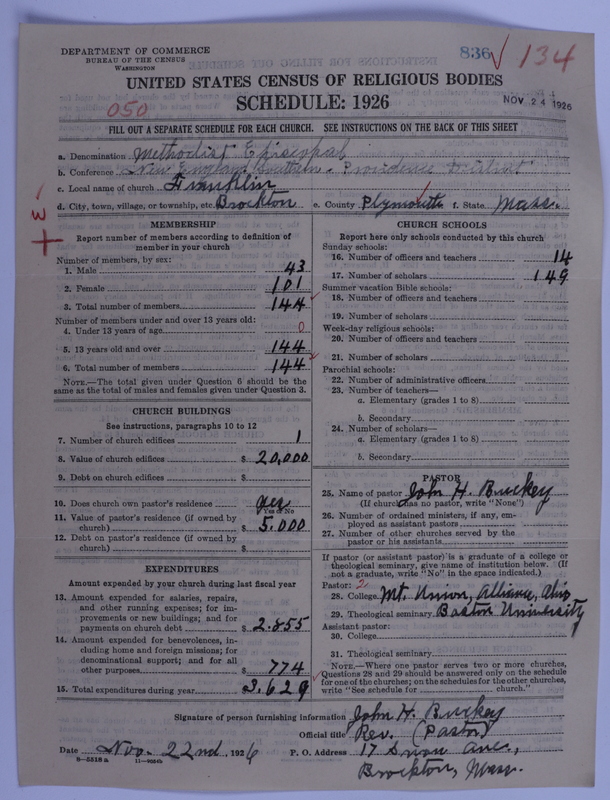 DEPARTMENT OF COMMERCE
BUREAU OF THE CENSUS
WASHINGTON
836 134
UNITED STATES CENSUS OF RELIGIOUS BODIES
SCHEDULE: 1926
NOV 24 1926
050
FILL OUT A SEPARATE SCHEDULE FOR EACH CHURCH. SEE INSTRUCTIONS ON THE BACK OF THIS SHEET
a. Denomination Methodist Episcopal
b. Conference New England Southern - Providence District
c. Local name of church Franklin
d. City, town, village, or township, etc. Brockton e. County Plymouth f. State Mass.
MEMBERSHIP
Report number of members according to definition of
member in your church
Number of members, by sex:
1. Male 43
2. Female 101
3. Total number of members 144
Number of members under and over 13 years old:
4. Under 13 years of age 0
5. 13 years old and over 144
6. Total number of members 144
NOTE.—The total given under Question 6 should be the
same as the total of males and females given under Question 3.
CHURCH BUILDINGS
See instructions, paragraphs 10 to 12
7. Number of church edifices 1
8. Value of church edifices $ 20,000
9. Debt on church edifices $
10. Does church own pastor's residence yes
Yes or No
11. Value of pastor's residence (if owned by
church) $ 5,000
12. Debt on pastor's residence (if owned by
church) $
EXPENDITURES
Amount expended by your church during last fiscal year
13. Amount expended for salaries, repairs,
and other running expenses; for im-
provements or new buildings; and for
payments on church debt $ 2,855
14. Amount expended for benevolences, in-
cluding home and foreign missions; for
denominational support; and for all
other purposes $ 774
15. Total expenditures during year $ 3,629
CHURCH SCHOOLS
Report here only schools conducted by this church
Sunday schools:
16. Number of officers and teachers 14
17. Number of scholars 149
Summer vacation Bible schools:
18. Number of officers and teachers
19. Number of scholars
Week-day religious schools:
20. Number of officers and teachers
21. Number of scholars
Parochial schools:
22. Number of administrative officers
23. Number of teachers—
a. Elementary (grades 1 to 8)
b. Secondary
24. Number of scholars—
a. Elementary (grades 1 to 8)
b. Secondary
PASTOR
25. Name of pastor John H. Buckey
(If church has no pastor, write "None")
26. Number of ordained ministers, if any, em-
ployed as assistant pastors
27. Number of other churches served by the
pastor or his assistants
If pastor (or assistant pastor) is a graduate of a college or
theological seminary, give name of institution below. (If
not a graduate, write "No" in the space indicated.)
Pastor: 2
28. College Mt. Union, Alliance, Ohio
29. Theological seminary Boston University
Assistant pastor:
30. College
31. Theological seminary
NOTE.—Where one pastor serves two or more churches,
Questions 28 and 29 should be answered only on the schedule
for one of the churches; on the schedules for the other churches,
write "See schedule for church."
Signature of person furnishing information John H. Buckey
Official title Rev. (Pastor)
Date Nov. 22nd, 1926 P. O. Address 17 Snow Ave.,
8—5518 a 11—9034b
Brockton, Mass.